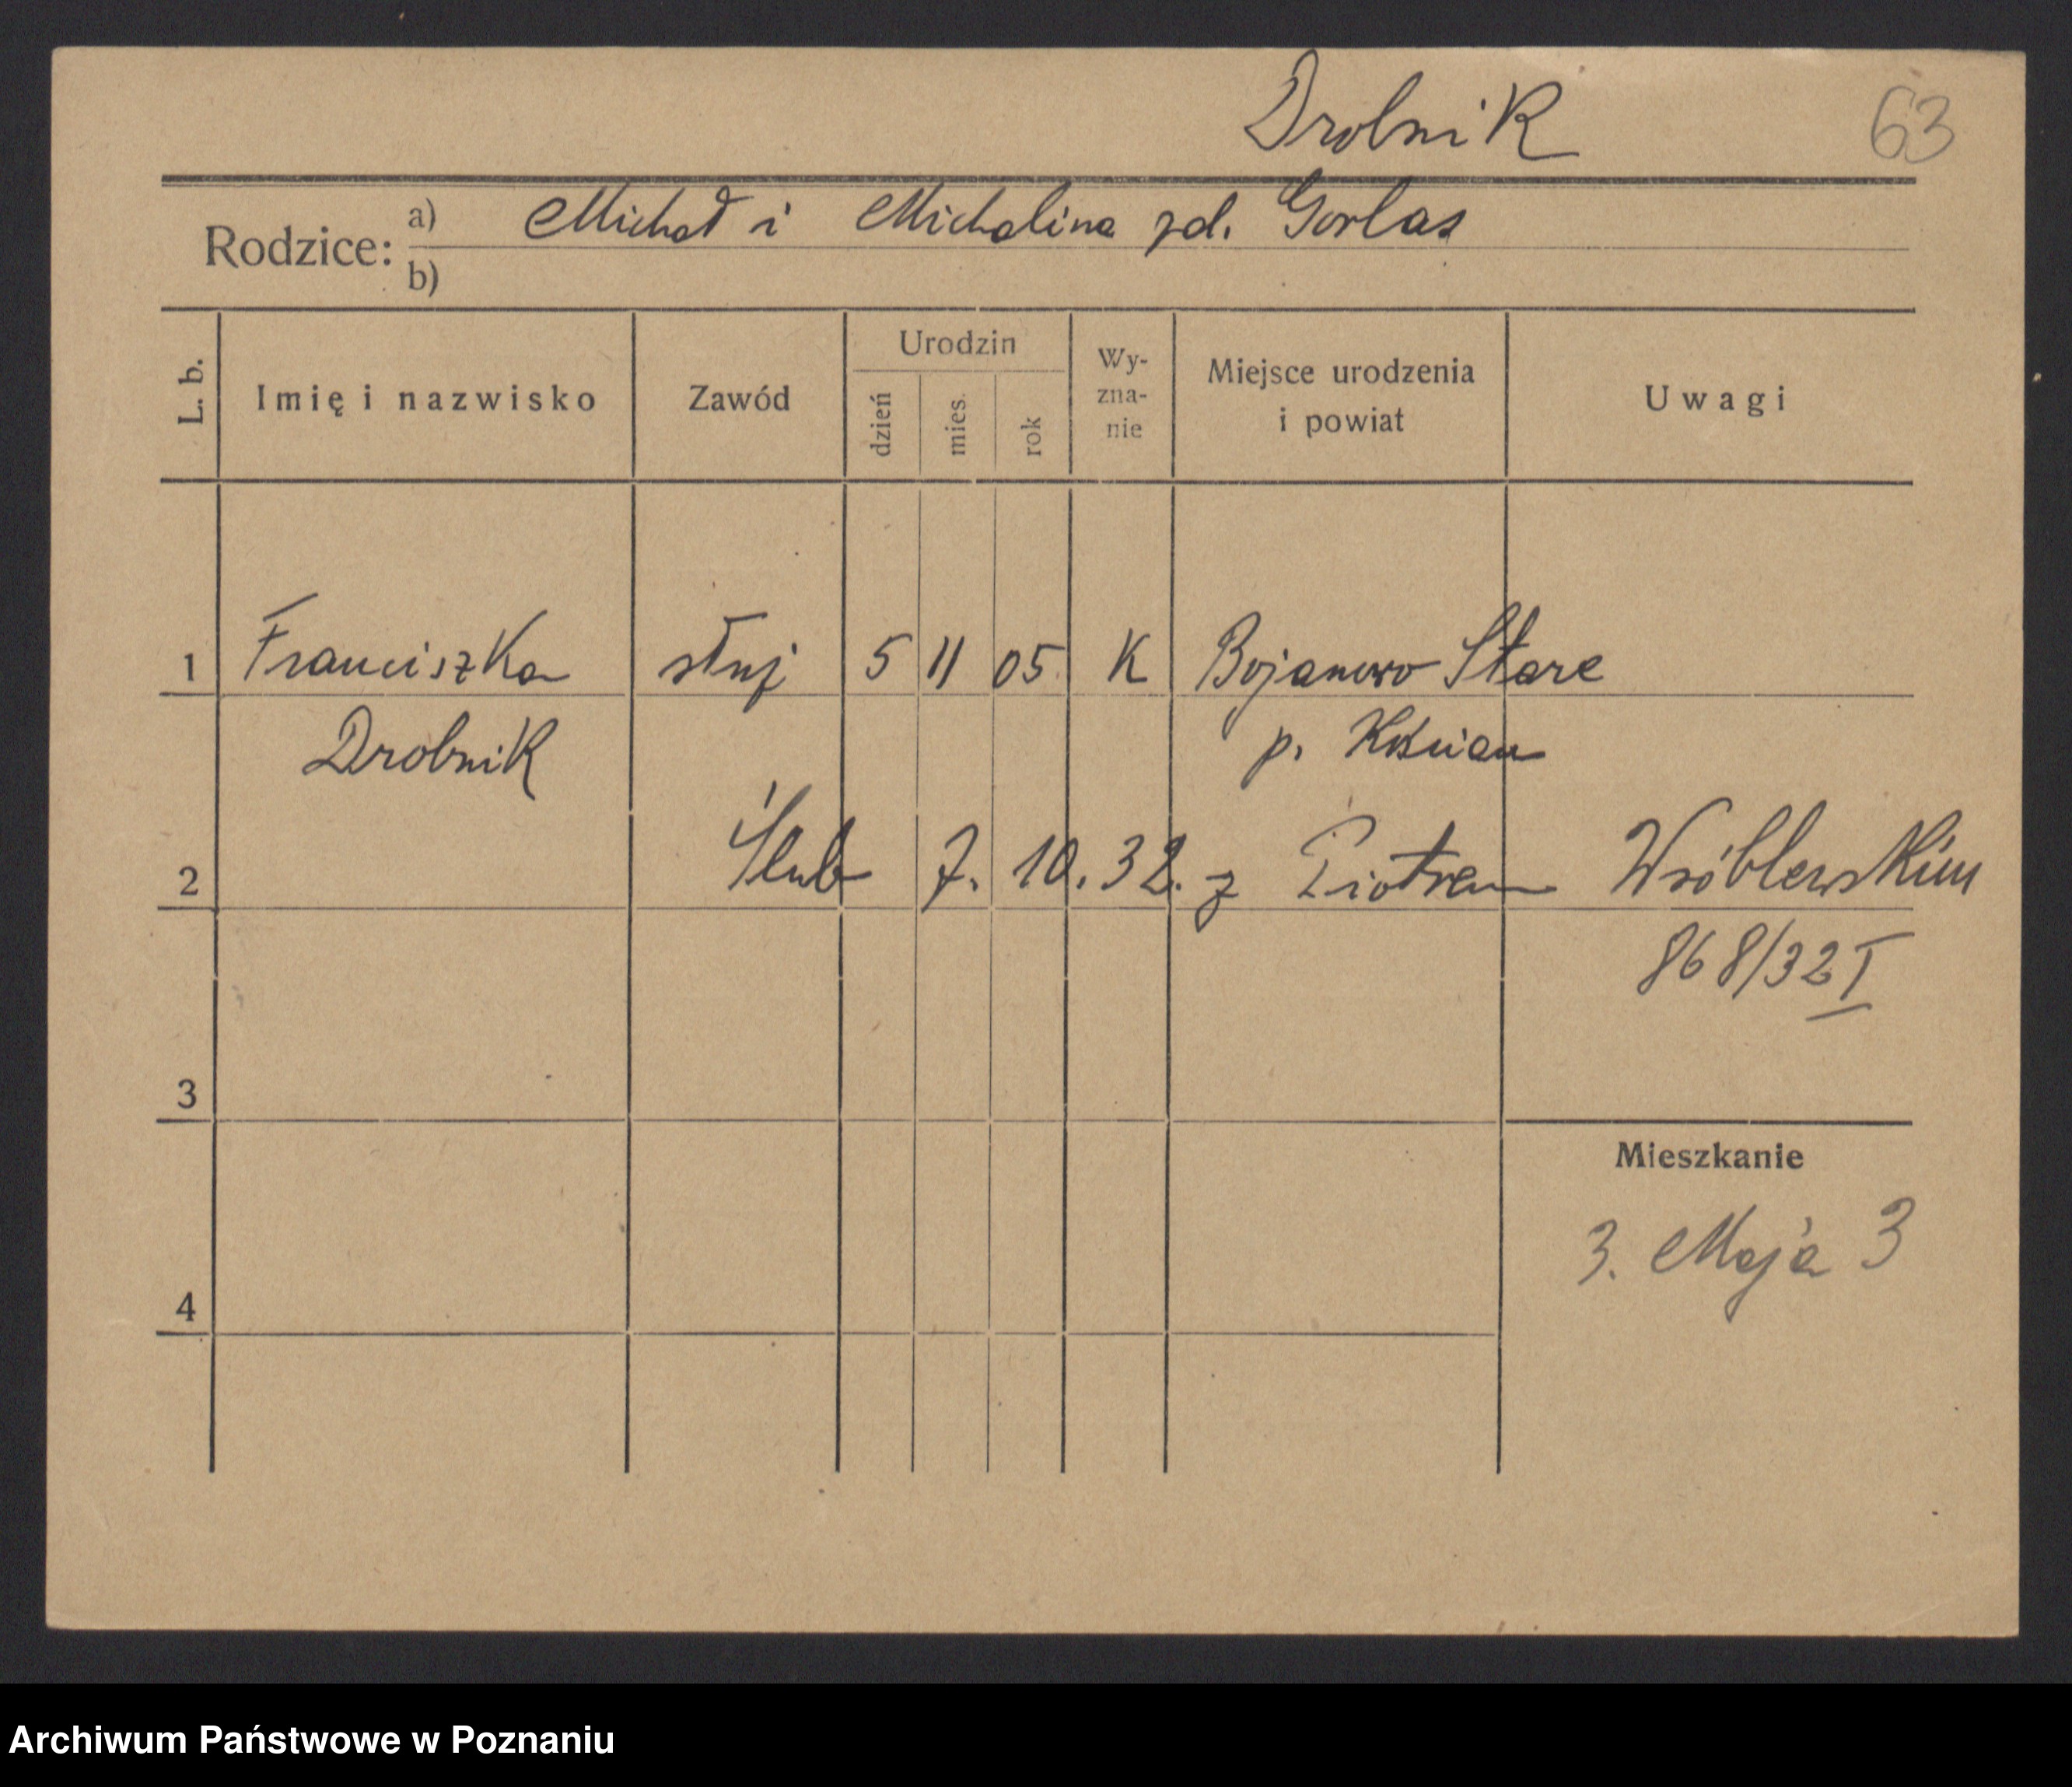 Drobnik 63
Rodzice: a) Michał i Michalina zd. Gorlas
b)
L. b. Imię i nazwisko Zawód Urodzin dzień mies. rok Wy-zna-nie Miejsce urodzenia i powiat Uwagi
1 Franciszka służ 5 11 05 K Bojanowo Stare
Drobnik p. Kościan
2 Ślub 7. 10. 32. z Piotrem Wróblewskim
868/32 I
3
Mieszkanie
3. Maja 3
4
Archiwum Państwowe w Poznaniu